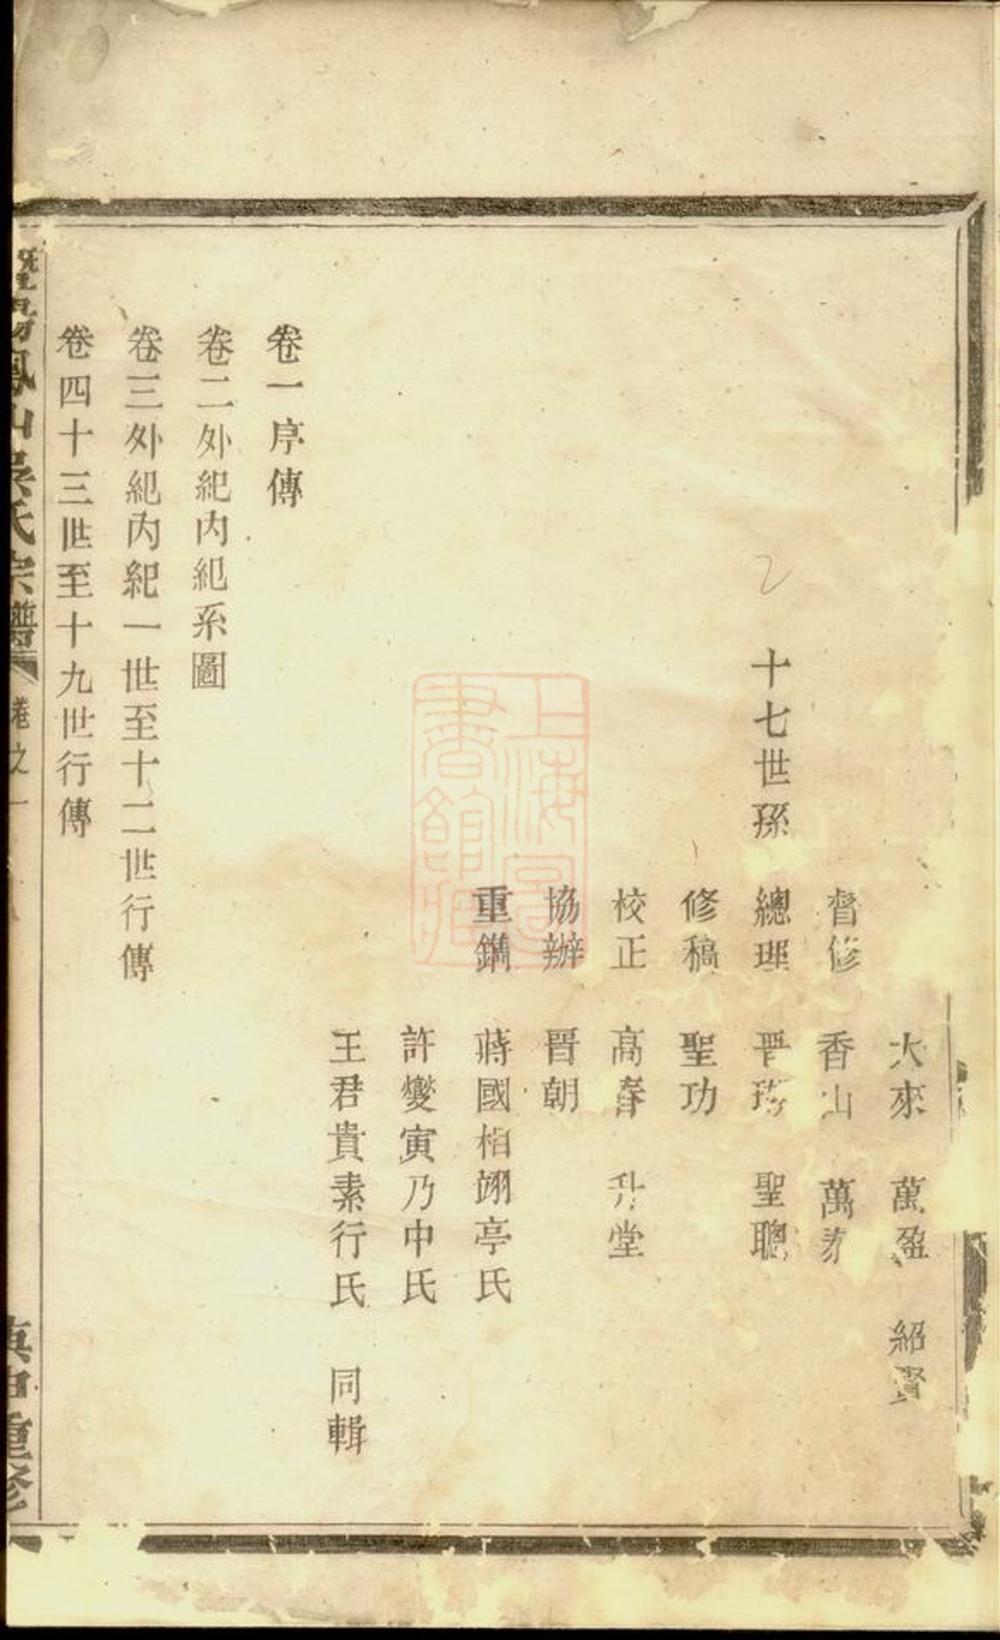 大來 萬盈 紹賢
督修 香山 萬彩
十七世孫 總理 晋珍 聖聰
修稿 聖功
校正 高春 升堂
協辦 晋朝
重鐫 蔣國柏翊亭氏
許燮寅乃中氏
王君貴素行氏 同輯
卷一序傳
卷二外紀內紀系圖
卷三外紀內紀一世至十二世行傳
卷四十三世至十九世行傳
暨陽鳳山吳氏宗譜 卷之一 庚申重修
上海圖書館藏